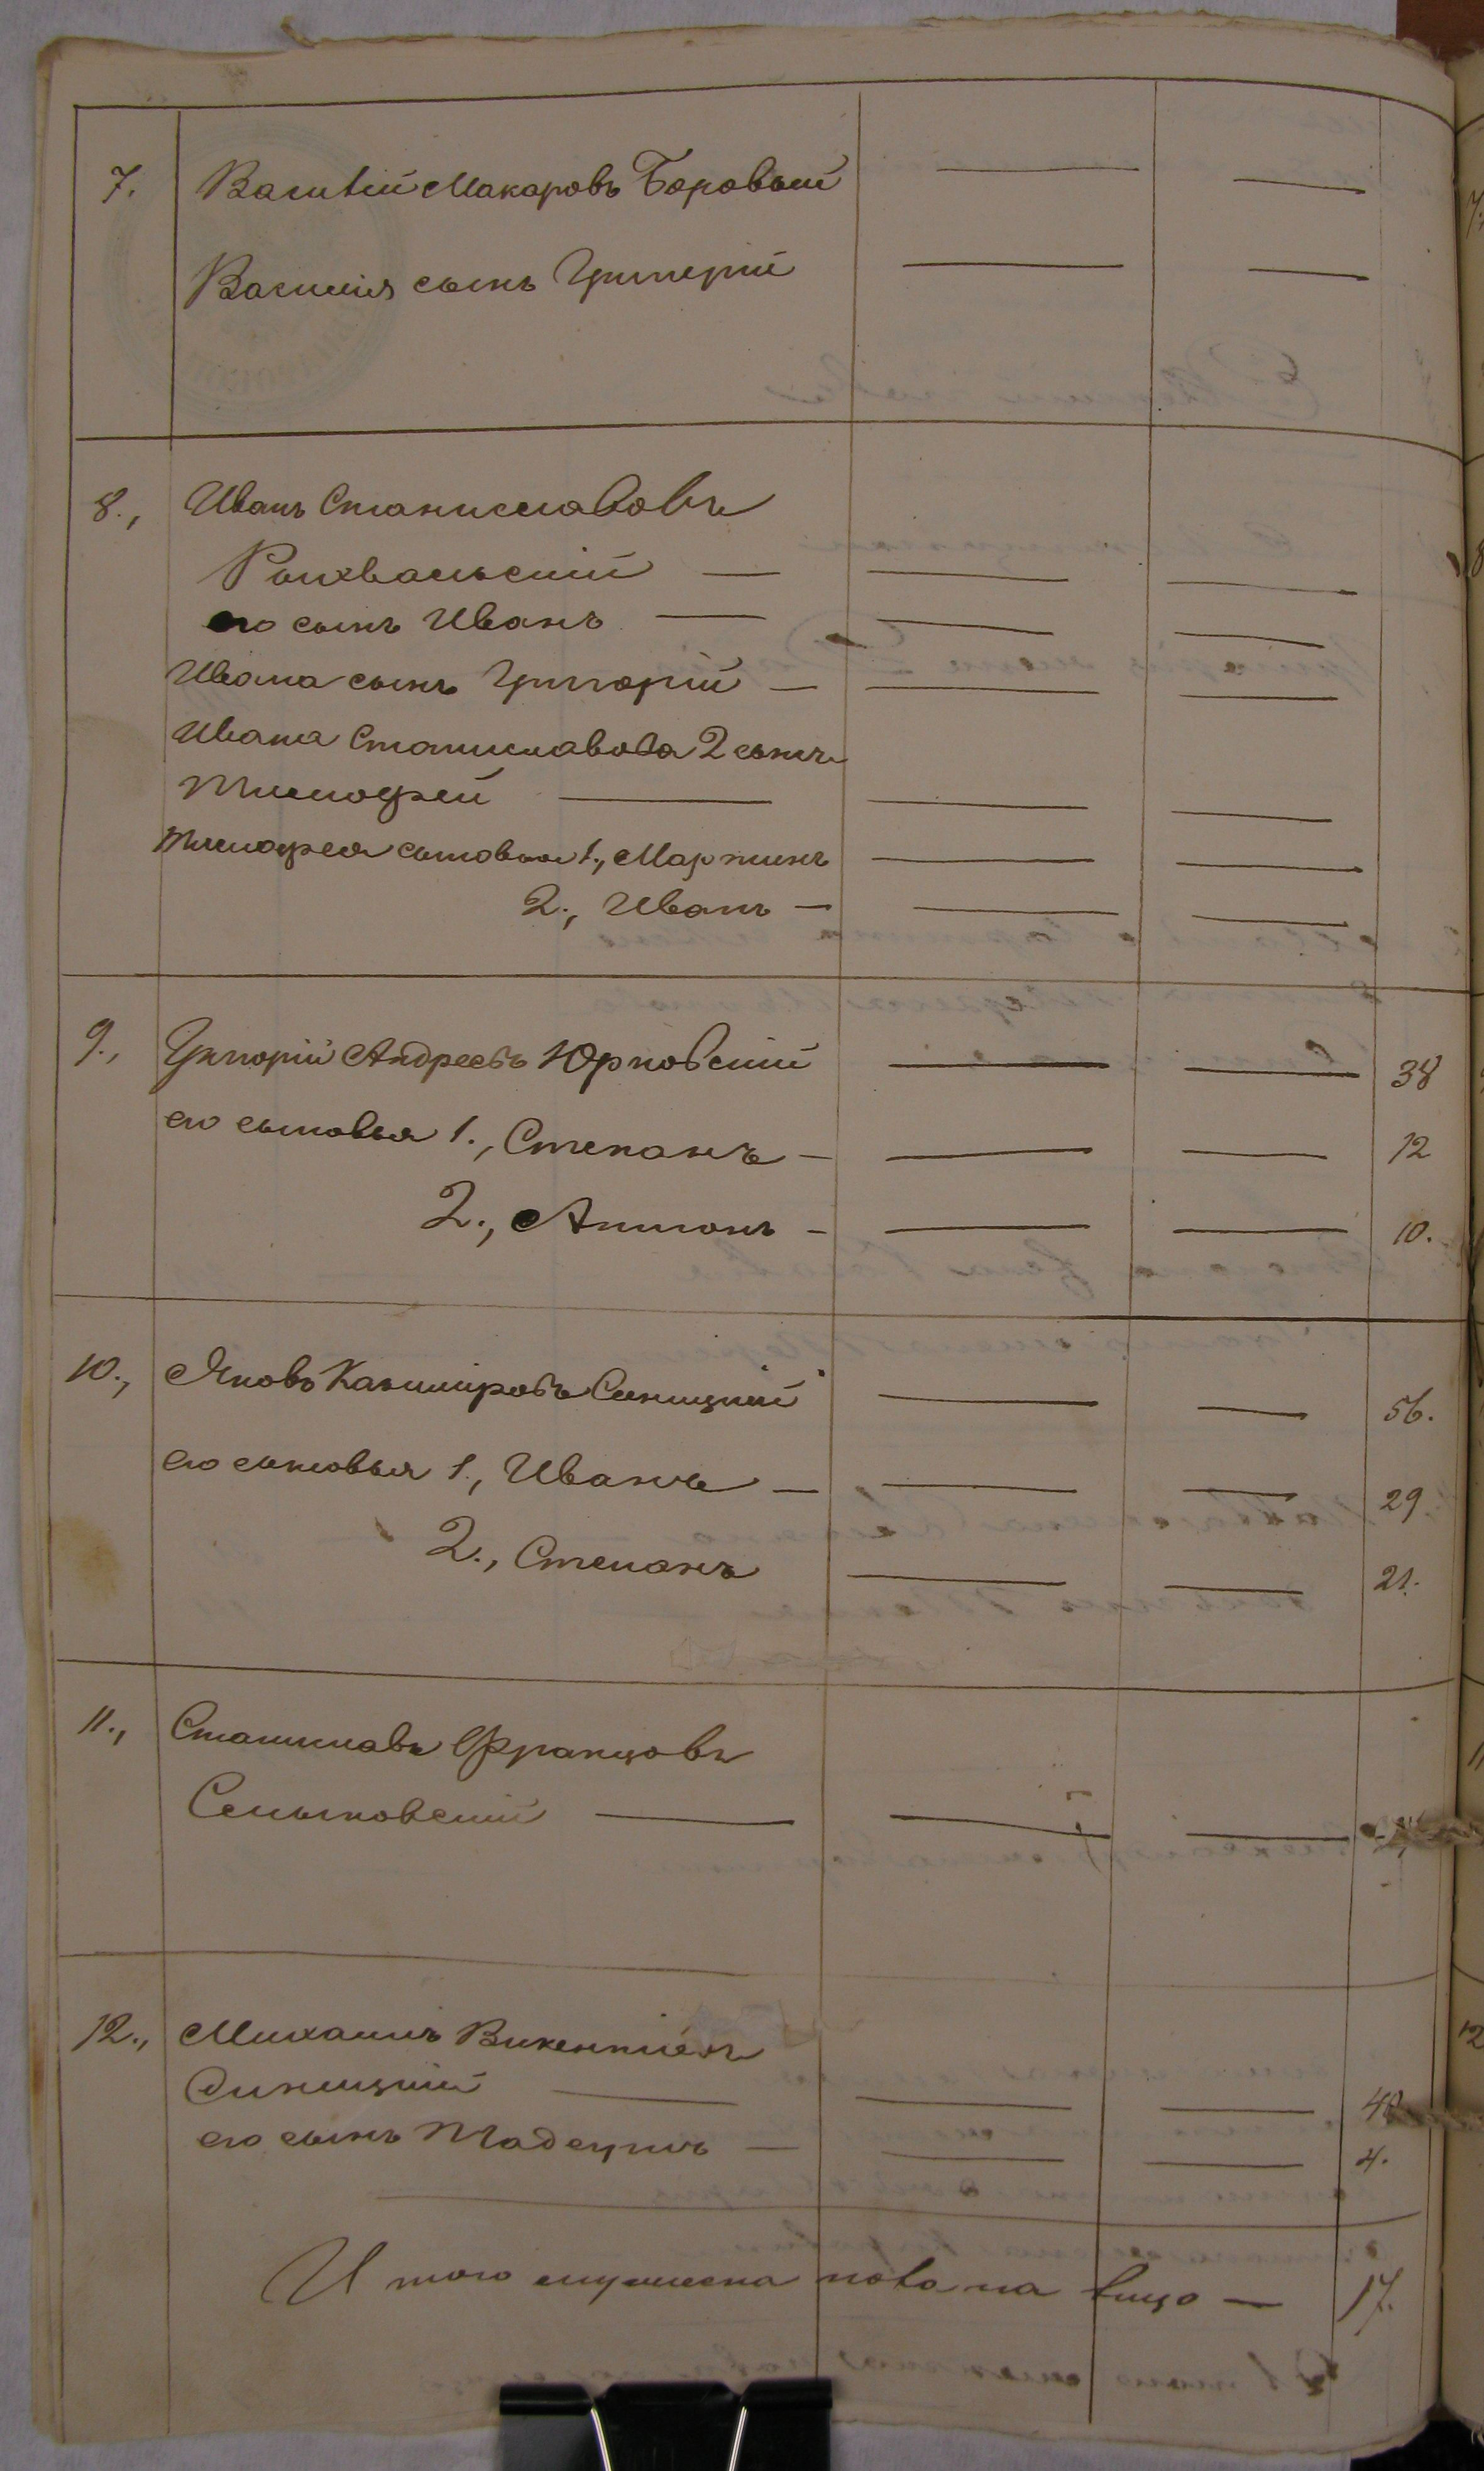 7. Василій Макаровъ Боровый — —
Василія сынъ Григорій — —
8., Иванъ Станиславовъ
Рыхвальскій — — —
его сынъ Иванъ — — —
Ивана сынъ Григорій — — —
Ивана Станиславова 2 сынъ
Тимофей — — —
Тимофея сыновья 1., Мартинъ — —
2., Иванъ — — —
9., Григорій Андреевъ Юрковскій — — 38
его сыновья 1., Степанъ — — — 12
2., Антонъ — — — 10.
10., Яковъ Казиміровъ Синицкій — — 56.
его сыновья 1., Иванъ — — — 29
2., Степанъ — — 21.
11., Станиславъ Францовъ
— — —
12., Михаилъ Викентіевъ
Синицкій — — — 40
его сынъ Тадеушъ — — — 4.
Итого мужеска пола на лицо — 17.